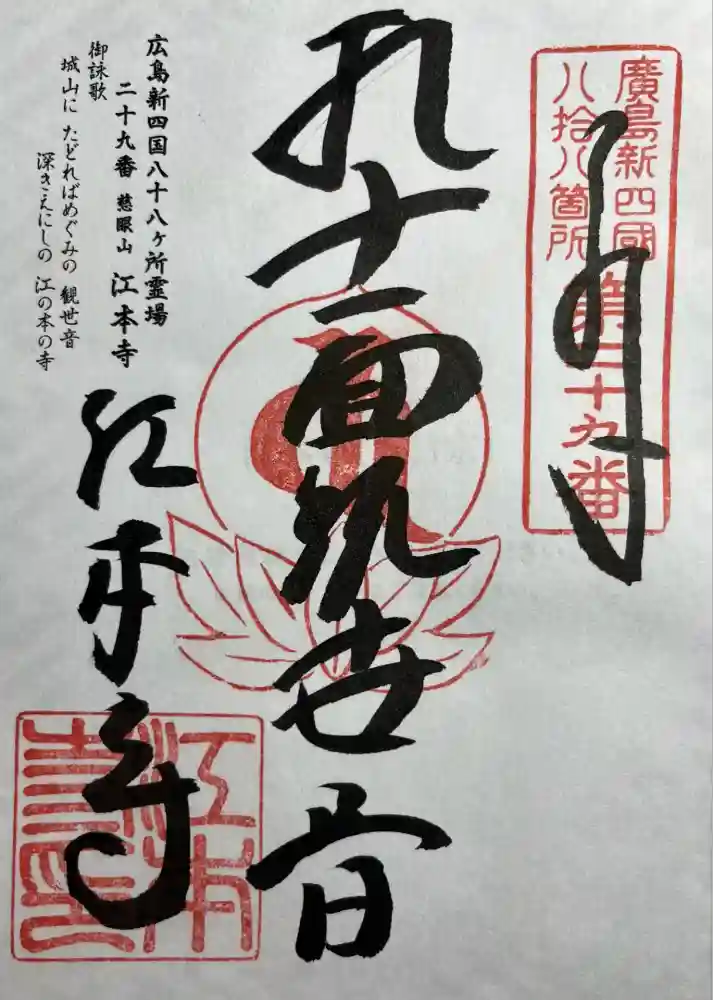 廣島新四國
八拾八箇所 第二十九番
奉拝
十一面観世音
江本寺
広島新四国八十八ヶ所霊場
二十九番 慈眼山 江本寺
御詠歌
城山に たどればめぐみの 観世音
深きえにしの 江の本の寺